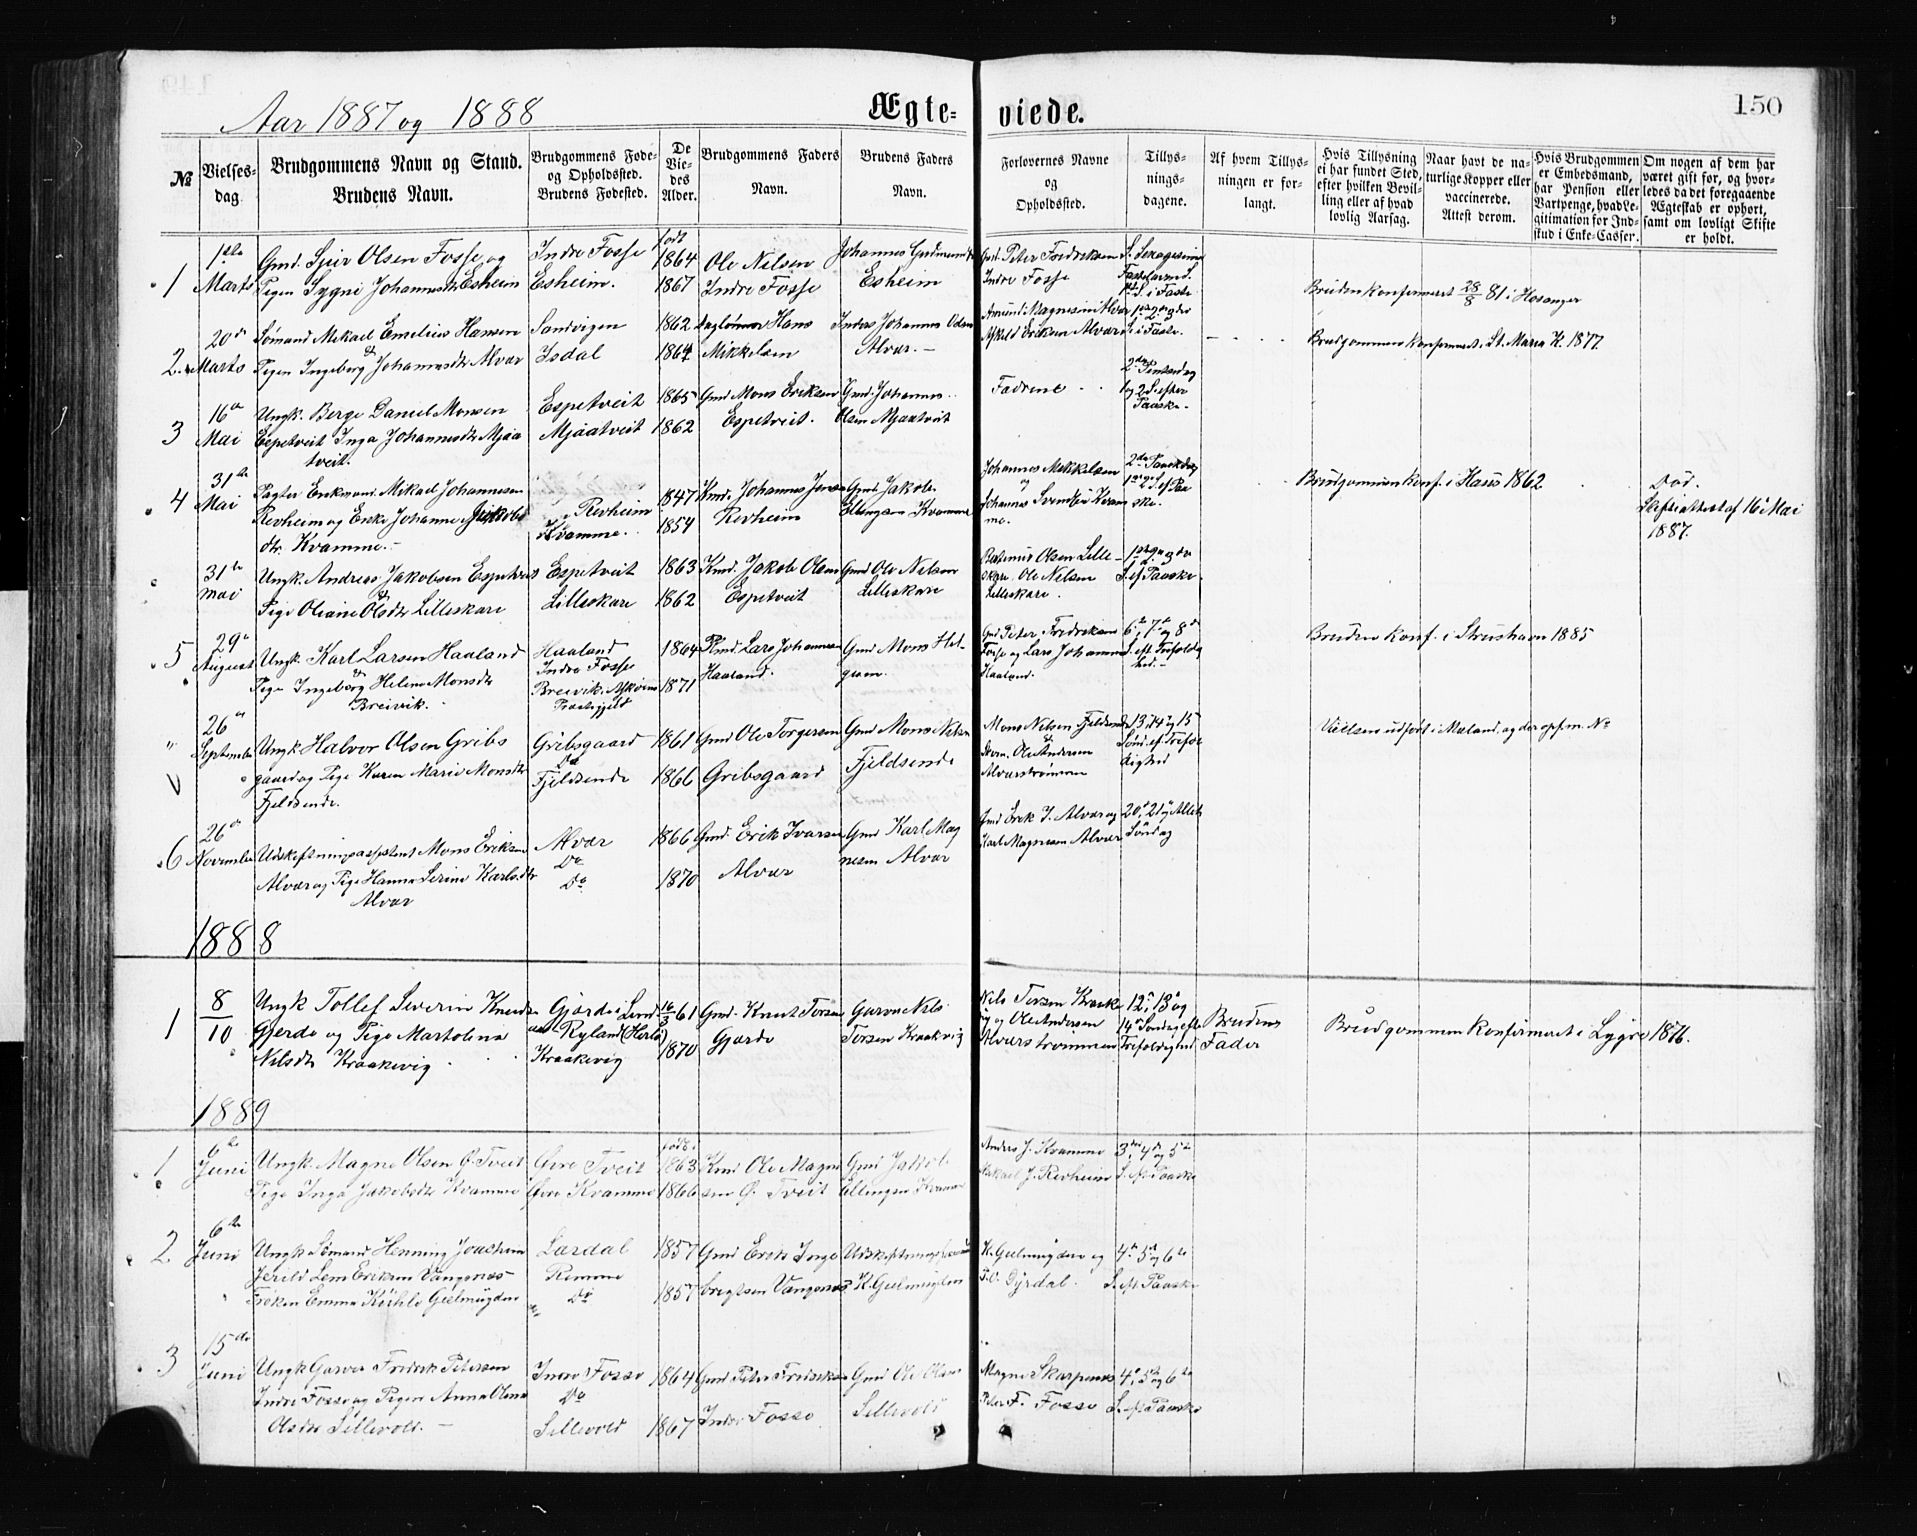 Aar 1887 og 1888
Ægte-
viede.
150
No
Vielses-
dag
Brudgommens Navn og Stand.
Brudens Navn.
Brudgommens Føde-
og Opholdssted.
Brudens Fødested.
De
Vie-
des
Alder.
Brudgommens Faders
Navn.
Brudens Faders
Navn.
Forlovernes Navne
og
Opholdssted.
Tillys-
nings-
dagene.
Af hvem Tillys-
ningen er for-
langt.
Hvis Tillysning
ei har fundet Sted,
efter hvilken Bevil-
ling eller af hvad
lovlig Aarsag.
Naar havt de na-
turlige Kopper eller
vaccinerede.
Attest derom.
Hvis Brudgommen
er Embedsmand,
har Pension eller
Vartpenge, hvad Le-
gitimation for Ind-
stud i Enke-Casser.
Om nogen af dem har
været gift før, og hvor-
ledes da det foregaaende
Ægteskab er ophørt,
samt om lovligt Skifte
er holdt.
1
1ste
Marts
Gmd. Sjur Olsen Fosse og
Pigen Sygni Johannesdtr Esheim
Indre Fosse
Esheim.
født
1864
1867
Ole Nilsen
Indre Fosse
Johannes Gudmunds
Esheim
Gmd. Peter Fredriksen
Indre Fosse
S. Sexagesima
Fastelavns S.
1ste S. i Faste
Bruden konfirmeret 28/8 81 i Hosanger
2
20de
Marts
Sømand Mikael Emelius Hansen
&
Pigen Ingeborg Johannesdtr Alvær
Sandvigen
Isdal
1862
1864
Daglønner Hans
Mikkelsen
Anders Johannes Olsen
Alvær.
Amund Magnesen Alvær
Askild Eriksen Alvær
1ste 2den og 3die
S. i Faste.
Brudgommen konfirmeret i St. Maria K. 1877.
3
16de
Mai
Ungk. Berge Daniel Monsen
Espetveit Inga Johannesdtr Mjaa
tveit.
Espetveit
Mjaatveit
1865
1862
Gmd Mons Eriksen
Espetveit.
Gmd. Johannes
Olsen Mjaatveit
Fædrene
2den Pintsedag
1 og 2 S. efter
Paaske.
4
31te
Mai
Pagter Enkemand Mikael Johannesen
Revheim og Enke Johanne Jakobs
dtr. Kvamme.
Revheim
Kvamme.
1847
1854
Kmd. Johannes Jonsen
Revheim
Gmd. Jakob
Ellingsen Kvamme
Johannes Mikkelsen
og
Johannes Svendsen Kvam
me.
2den Paaskedag
1ste 2 S. ef. Paa
ske.
Brudgommen konf. i Haus 1862
Død.
Skifteattest af 16 Mai
1887.
31te
Mai
Ungk. Andreas Jakobsen Espetveit
&
Pige Oliane Olsdtr Lilleskare
Espetveit
Lilleskare
1863
1862
Kmd. Jakob Olsen
Espetveit
Gmd Ole Nilsen
Lilleskare
Rasmus Olsen Lille-
skare. Ole Nilsen
Lilleskare.
1ste 2den og 3die
S. ef. Paaske
5
29de
August
Ungk. Karl Larsen Haaland
&
Pige Ingeborg Helene Monsdtr
Breivik.
Haaland
Indre Fosse
Breivik. Askøens
Præstegjeld
1864
1871
Kmd Lars Johannesen
Haaland.
Gmd Mons Hel-
gesen.
Gmd Peter Fredriksen
Fosse og Lars Johannesen
Haaland.
6te, 7de og 8de
S. eft. Trefoldig
hed.
Bruden konf. i Strushavn 1885
26de
September
Ungk. Halvor Olsen Gribs
gaard og Pige Karen Marie Monsdtr
Fjeldsende.
Gribsgaard
Do
Fjeldsende
1861
1866
Gmd Ole Torgersen
Gribsgaard
Gmd Mons Nilsen
Fjeldsende
Mons Nilsen Fjeldsende
&
Ole Andersen
Alværstrømmen
13, 14 og 15
Sønd. ef. Trefol
dighed
Vielsen udført i Mæland, og der opf. m. No
6
26de
November
Udskiftningsassistent Mons Eriksen
Alvær og Pige Hanna Serine Karlsdtr
Alvær
Alvær
Do
Do
1866
1870
Gmd. Erik Ivarsen
Alvær
Gmd Karl Mag
nesen Alvær
Gmd Erik I. Alvær og
Karl Magnesen Alvær
20de, 21de og Allsh
Søndag
1888
1
8/10
Ungk Tollef Severin Knudsen
Gjerde og Pige Martolina
Nilsdtr Kraakevig
Gjærde i Lind
aas Ryland (Herlø)
Kraakevig
16/3 61
1870
Gmd. Knut Torsen
Gjærde
Garver Nils
Torsen Kraakvig
Nils Torsen Kraake
vig og Ole Andersen
Alværstrømmen
12te, 13de og
14de Søndag efter
Trefoldighed
Brudens
Fader
Brudgommen konfirmeret i Lygre 1876.
1889
1
6te
Juni
Ungk. Magne Olsen Ø. Tveit
Pige Inga Jakobsdtr Kvamme
Øvre Tveit
Øvre Kvamme
født
1863
1866
Kmd Ole Magne
sen Ø. Tveit
Gmd Jakob
Ellingsen Kvamme
Anders J. Kvamme
Mikael J. Revheim
3die, 4de og 5te
S. ef. Paaske
2
6te
Juni
Ungk Sømand Henning Joachim
Jerild Lem Eriksen Vangsnes
Frøken Emma Kühle Geelmuyden
Lærdal
Remme
Do
1857
1857
Gmd Erik Inge
brigtsen Vangsnes
Udskiftningsformand
K. Geelmuyden
K. Geelmuyden og
P. O. Dyrdal.
4de, 5te og 6te
S. ef. Paaske
3
15de
Juni
Ungk Garver Fredrik Petersen
Indre Fosse og Pigen Anna Olena
Olsdtr Sellevold.
Indre Fosse
Do
Sellevold
1864
1867
Gmd Peter Fredriksen
Indre Fosse
Gmd Ole Olsen
Sellevold
Magne Skarpenes
Peter F. Fosse
4de, 5te og 6te
S. ef. Paaske